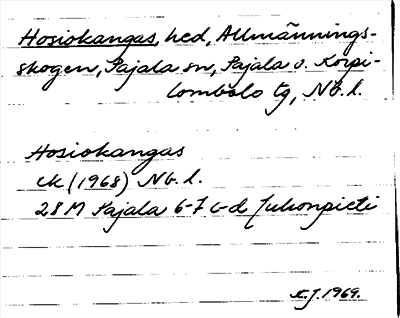 Hosiokangas, hed, Allmännings-
skogen, Pajala sn, Pajala o. Korpi-
lombolo tg, Nb. l.
Hosiokangas
ek (1968) Nb. l.
28 M Pajala 6-7 c-d Juhonpieti
1969.